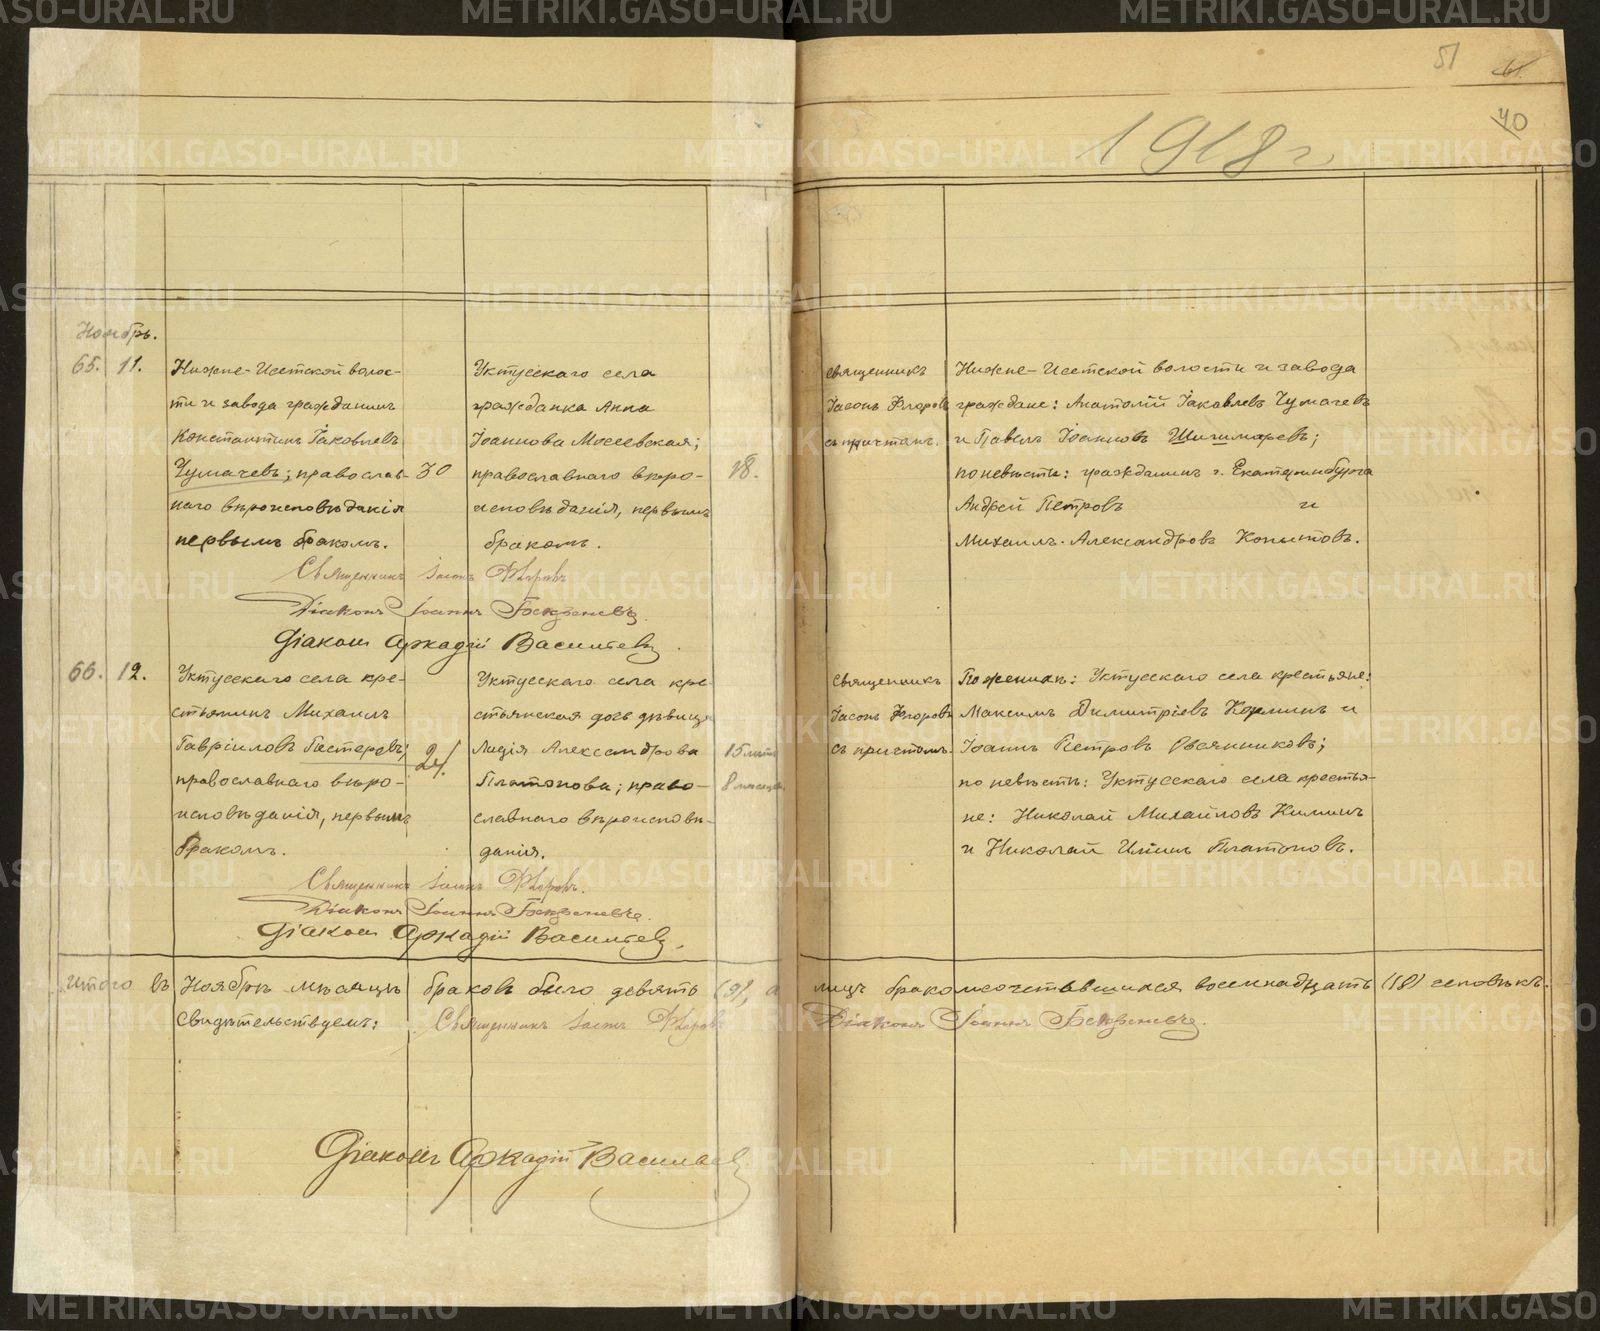 51
40
1918 г.
Ноябрь.
65. 11.
Нижне-Исетской волос-
ти и завода гражданинъ
Константинъ Iаковлевъ
Чумачевъ; православ-
наго вѣроисповѣданія
первымъ бракомъ.
30
Уктусскаго села
гражданка Анна
Iоаннова Мосеевская;
православнаго вѣро-
исповѣданія, первымъ
бракомъ.
18.
священникъ
Iасонъ Флоровъ
съ причтомъ.
Нижне-Исетской волости и завода
граждане: Анатолій Iаковлевъ Чумачевъ
и Павелъ Iоанновъ Шишмаревъ;
по невѣстѣ: гражданинъ г. Екатеринбурга
Андрей Петровъ и
Михаилъ Александровъ Копытовъ.
Священникъ Iасонъ Флоровъ
Дiаконъ Iоаннъ
Дiаконъ Аркадiй Васильевъ.
66. 12.
Уктусскаго села кре-
стьянинъ Михаилъ
Гавріиловъ Пастеревъ;
православнаго вѣро-
исповѣданія, первымъ
бракомъ.
24.
Уктусскаго села кре-
стьянская дочь дѣвица
Лидія Александрова
Платонова; право-
славнаго вѣроисповѣ-
данія.
15 лѣтъ
8 мѣсяцевъ
священникъ
Iасонъ Флоровъ
съ причтомъ.
По женихѣ: Уктусскаго села крестьяне:
Максимъ Димитріевъ и
Iоаннъ Петровъ Овсянниковъ;
по невѣстѣ: Уктусскаго села крестья-
не: Николай Михайловъ
и Николай Платоновъ.
Священникъ Iасонъ Флоровъ.
Дiаконъ Iоаннъ
Дiаконъ Аркадiй Васильевъ.
Итого въ Ноябрѣ мѣсяцѣ браковъ было девять (9), а лицъ бракомсочетавшихся восемнадцать (18) человѣкъ.
Свидѣтельствуемъ: Священникъ Iасонъ Флоровъ Дiаконъ Iоаннъ
Дiаконъ Аркадiй Васильевъ
METRIKI.GASO-URAL.RU